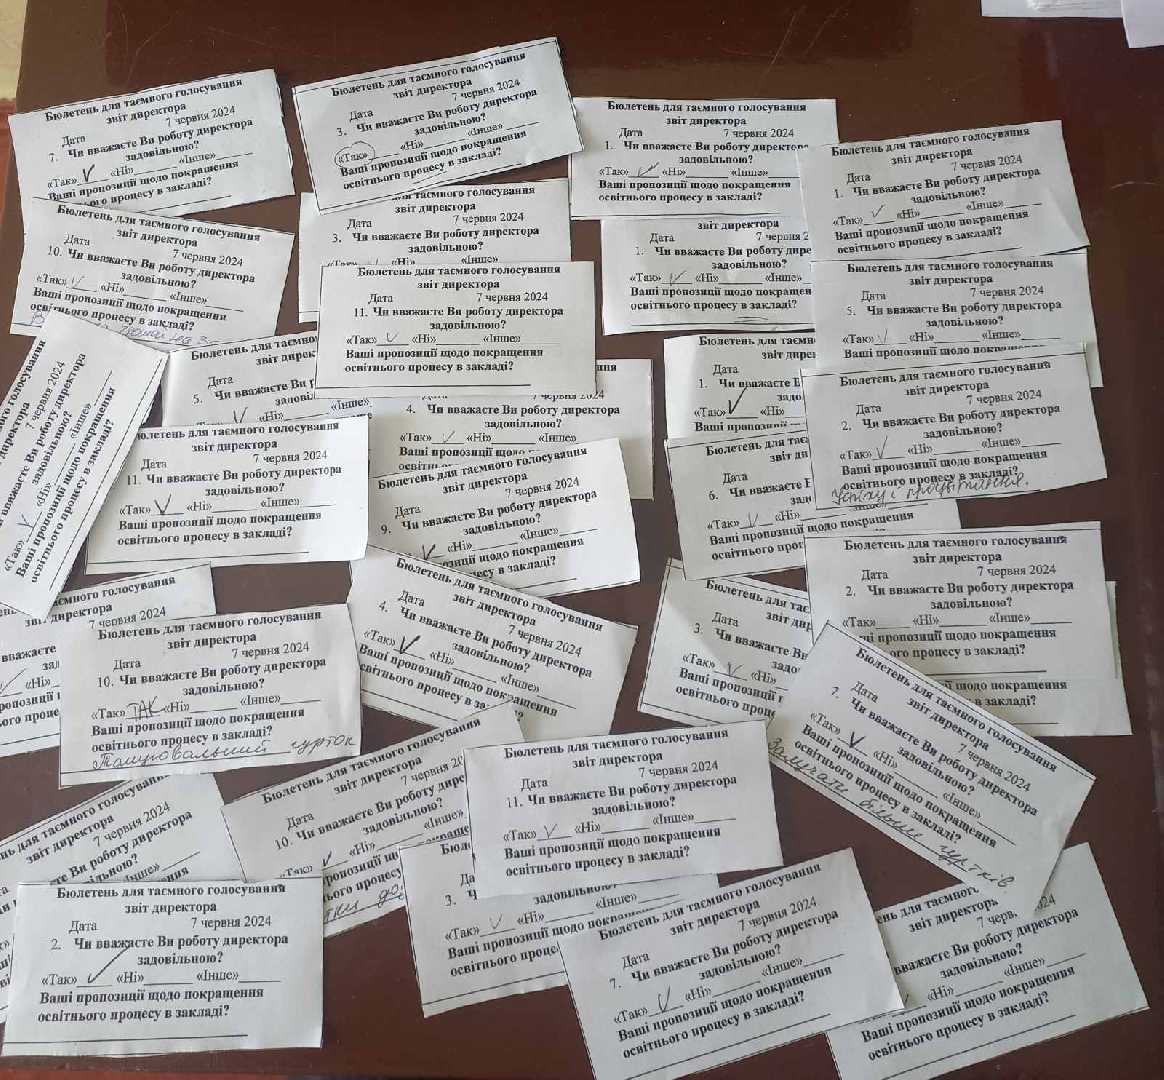 Бюлетень для таємного голосування
звіт директора
Дата 7 червня 2024
7. Чи вважаєте Ви роботу директора
задовільною?
«Так» «Ні» «Інше»
Ваші пропозиції щодо покращення
процесу в закладі?
Бюлетень для таємного голосування
звіт директора
Дата 7 червня 2024
3. Чи вважаєте Ви роботу директора
задовільною?
«Так» «Ні» «Інше»
Ваші пропозиції щодо покращення
освітнього процесу в закладі?
Бюлетень для таємного голосування
звіт директора
Дата 7 червня 2024
1. Чи вважаєте Ви роботу директора
задовільною?
«Так» «Ні» «Інше»
Ваші пропозиції щодо покращення
освітнього процесу в закладі?
Бюлетень для таємного голосування
звіт директора
Дата 7 червня 2024
1. Чи вважаєте Ви роботу директора
задовільною?
«Так» «Ні» «Інше»
Ваші пропозиції щодо покращення
освітнього процесу в закладі?
Бюлетень для таємного голосування
звіт директора
Дата 7 червня 2024
10. Чи вважаєте Ви роботу директора
задовільною?
«Так» «Ні» «Інше»
Ваші пропозиції щодо покращення
освітнього процесу в закладі?
звіт директора
Дата 7 червня 2024
3. Чи вважаєте Ви роботу директора
задовільною?
звіт директора
Дата 7 червня 2
1. Чи вважаєте Ви роботу дире
задовільною?
«Так» «Ні» «Інше»
Ваші пропозиції щодо покращен
освітнього процесу в закладі?
Бюлетень для таємного голосування
звіт директора
Дата 7 червня 2024
11. Чи вважаєте Ви роботу директора
задовільною?
«Так» «Ні» «Інше»
Ваші пропозиції щодо покращення
освітнього процесу в закладі?
Бюлетень для таємного голосування
звіт директора
Дата 7 червня 2024
5. Чи вважаєте Ви роботу директора
задовільною?
«Так» «Ні» «Інше»
Ваші пропозиції щодо
голосування
директора
7 червня 2024
вважаєте Ви роботу директора
задовільною?
«Так» «Ні» «Інше»
Ваші пропозиції щодо покращення
освітнього процесу в закладі?
Бюлетень для таємн
звіт дирек
Дата
5. Чи вважаєте Ви р
задові
«Ні» «Інше»
7 червня 2024
4. Чи вважаєте Ви роботу директора
задовільною?
«Так» «Ні» «Інше»
Ваші пропозиції щодо
Бюлетень для таємн
звіт дире
Дата
1. Чи вважаєте
задо
«Так»
Ваші пропозиції щодо
Бюлетень для таємного голосування
звіт директора
Дата 7 червня 2024
2. Чи вважаєте Ви роботу директора
задовільною?
«Так» «Ні» «Інше»
Ваші пропозиції щодо покращення
освітнього процесу в закладі?
Успіху і процвітання.
Бюлетень для таємного голосування
звіт директора
Дата 7 червня 2024
11. Чи вважаєте Ви роботу директора
задовільною?
«Так» «Ні» «Інше»
Ваші пропозиції щодо покращення
освітнього процесу в закладі?
Бюлетень для таємного голосування
звіт директора
Дата 7 червня 2024
9. Чи вважаєте Ви роботу директора
задовільною?
«Ні» «Інше»
щодо покращення
в закладі?
Бюлетень для
Дата
6. Чи вважаєте
«Так» «Ні» «Інше»
Ваші пропозиції щодо покращення
Бюлетень для таємного голосування
звіт директора
Дата 7 червня 2024
2. Чи вважаєте Ви роботу директора
задовільною?
«Так» «Ні» «Інше»
пропозиції щодо покращення
процесу в закладі?
щодо покращення
в закладі?
директора
7 червня 2024
«Ні»
Бюлетень для таємного голосування
звіт директора
Дата 7 червня 2024
10. Чи вважаєте Ви роботу директора
задовільною?
«Так» ТАК «Ні» «Інше»
Ваші пропозиції щодо покращення
освітнього процесу в закладі?
Танцювальний гурток
Бюлетень для таємного голосування
звіт директора
Дата 7 червня 2024
4. Чи вважаєте Ви роботу директора
задовільною?
«Так» «Ні» «Інше»
Ваші пропозиції щодо покращення
освітнього процесу в
Бюлетень для
звіт
Дата
3. Чи вважаєте
«Так» «Ні»
Ваші пропозиції
освітнього
Бюлетень для таємного голосування
звіт директора
Дата 7 червня 2024
7. Чи вважаєте Ви роботу директора
задовільною?
«Так» «Ні» «Інше»
Ваші пропозиції щодо покращення
освітнього процесу в закладі?
Залучати більше гуртків
для таємного голосування
звіт директора
7 червня 2024
Ви роботу директора
«Інше»
Бюлетень для таємного голосування
звіт директора
Дата 7 червня 20
10. Чи вважаєте Ви роботу дире
задовільною?
«Так» «Ні» «Інше»
Бюлетень для таємного голосування
звіт директора
Дата 7 червня 2024
11. Чи вважаєте Ви роботу директора
задовільною?
«Так» «Ні» «Інше»
Ваші пропозиції щодо покращення
освітнього процесу в закладі?
3.
задовільною?
«Так» «Ні» «Інше»
Ваші пропозиції щодо
освітнього
Бюлетень для таємного голосування
звіт директора
Дата 7 червня 2024
2. Чи вважаєте Ви роботу директора
задовільною?
«Так» «Ні» «Інше»
Ваші пропозиції щодо покращення
освітнього процесу в закладі?
Бюлетень для таємного голосування
звіт директора
Дата 7 червня 2024
7. Чи вважаєте Ви роботу директора
задовільною?
«Так» «Ні» «Інше»
Ваші пропозиції щодо покращення
освітнього процесу в закладі?
для таємного
звіт директора
вважаєте Ви роботу директора
задовільною?
«Ні» «Інше»
Ваші пропозиції щодо покращення
освітнього процесу в закладі?